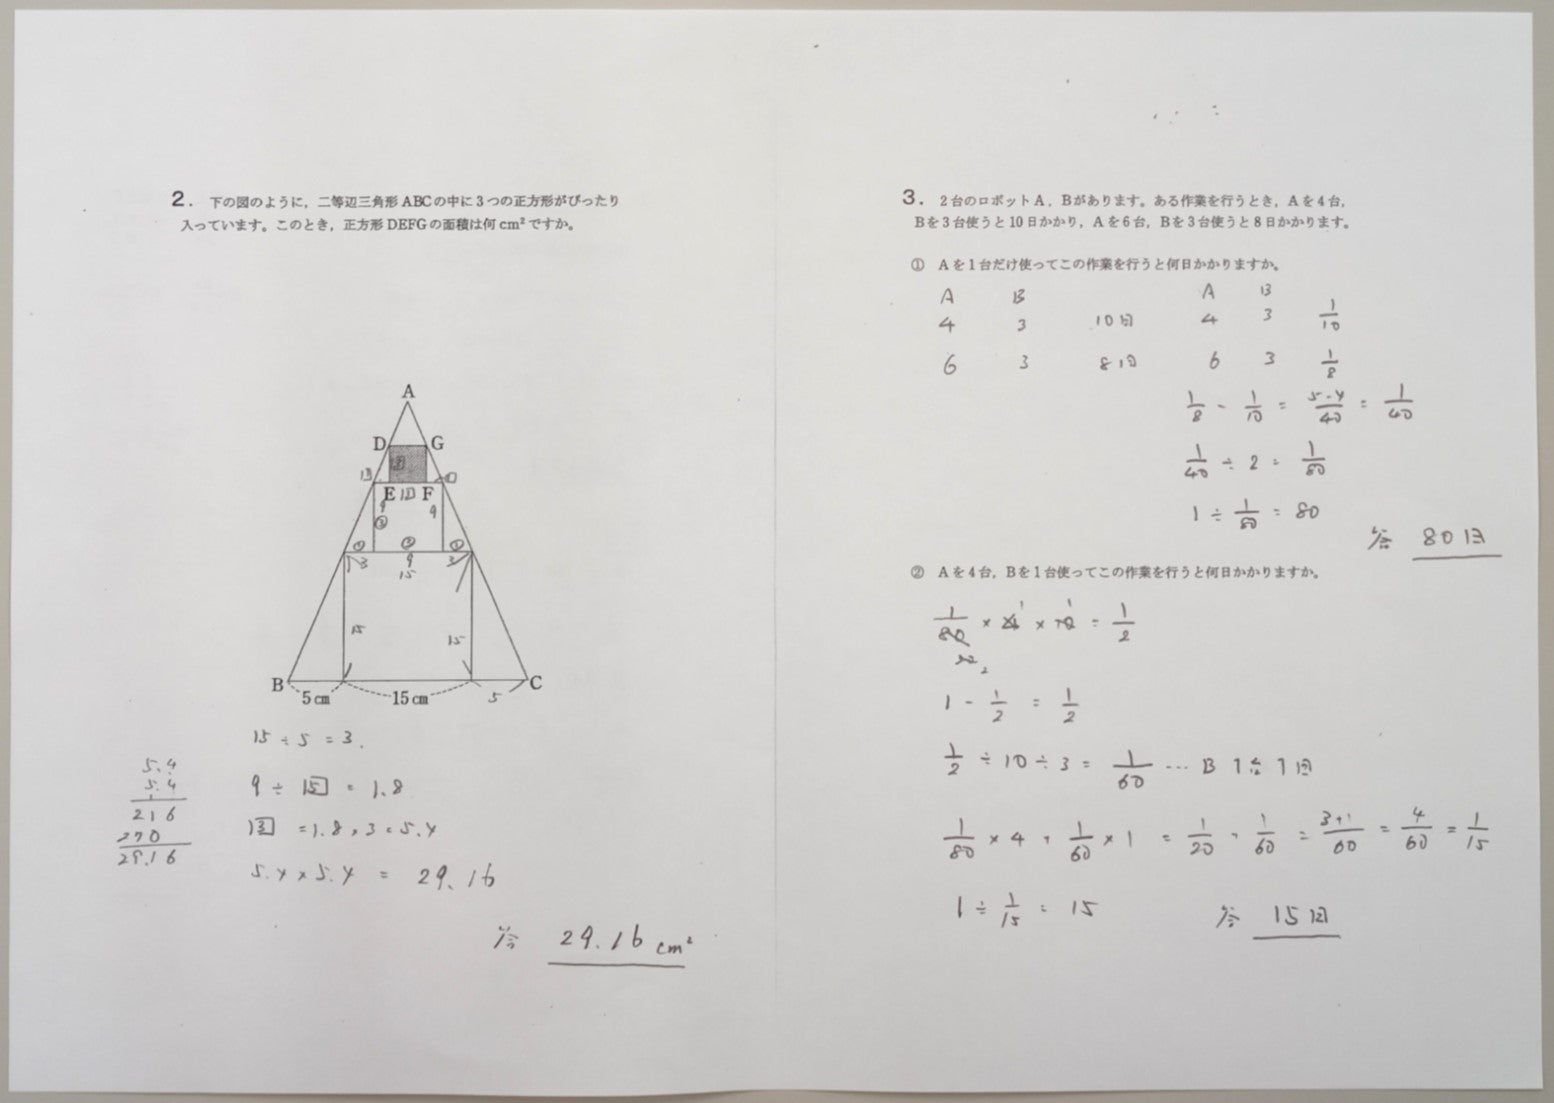 2. 下の図のように，二等辺三角形ABCの中に3つの正方形がぴったり
入っています。このとき，正方形DEFGの面積は何cm²ですか。
A
D G
E F
9 9
③
① ③ ①
3 9 3
15
15 15
B C
5cm 15cm 5
15÷5=3.
5.4
5.4
216
270
29.16
9÷5=1.8
3=1.8×3=5.4
5.4×5.4=29.16
答 29.16cm²
3. 2台のロボットA，Bがあります。ある作業を行うとき，Aを4台，
Bを3台使うと10日かかり，Aを6台，Bを3台使うと8日かかります。
① Aを1台だけ使ってこの作業を行うと何日かかりますか。
A B A B
4 3 10日 4 3 1/10
6 3 8日 6 3 1/8
1/8 - 1/10 = 5-4/40 = 1/40
1/40 ÷ 2 = 1/80
1 ÷ 1/80 = 80
答 80日
② Aを4台，Bを1台使ってこの作業を行うと何日かかりますか。
1/80 × 4 × 10 = 1/2
1 - 1/2 = 1/2
1/2 ÷ 10 ÷ 3 = 1/60 … B 1台1日
1/80 × 4 + 1/60 × 1 = 1/20 + 1/60 = 3+1/60 = 4/60 = 1/15
1 ÷ 1/15 = 15
答 15日